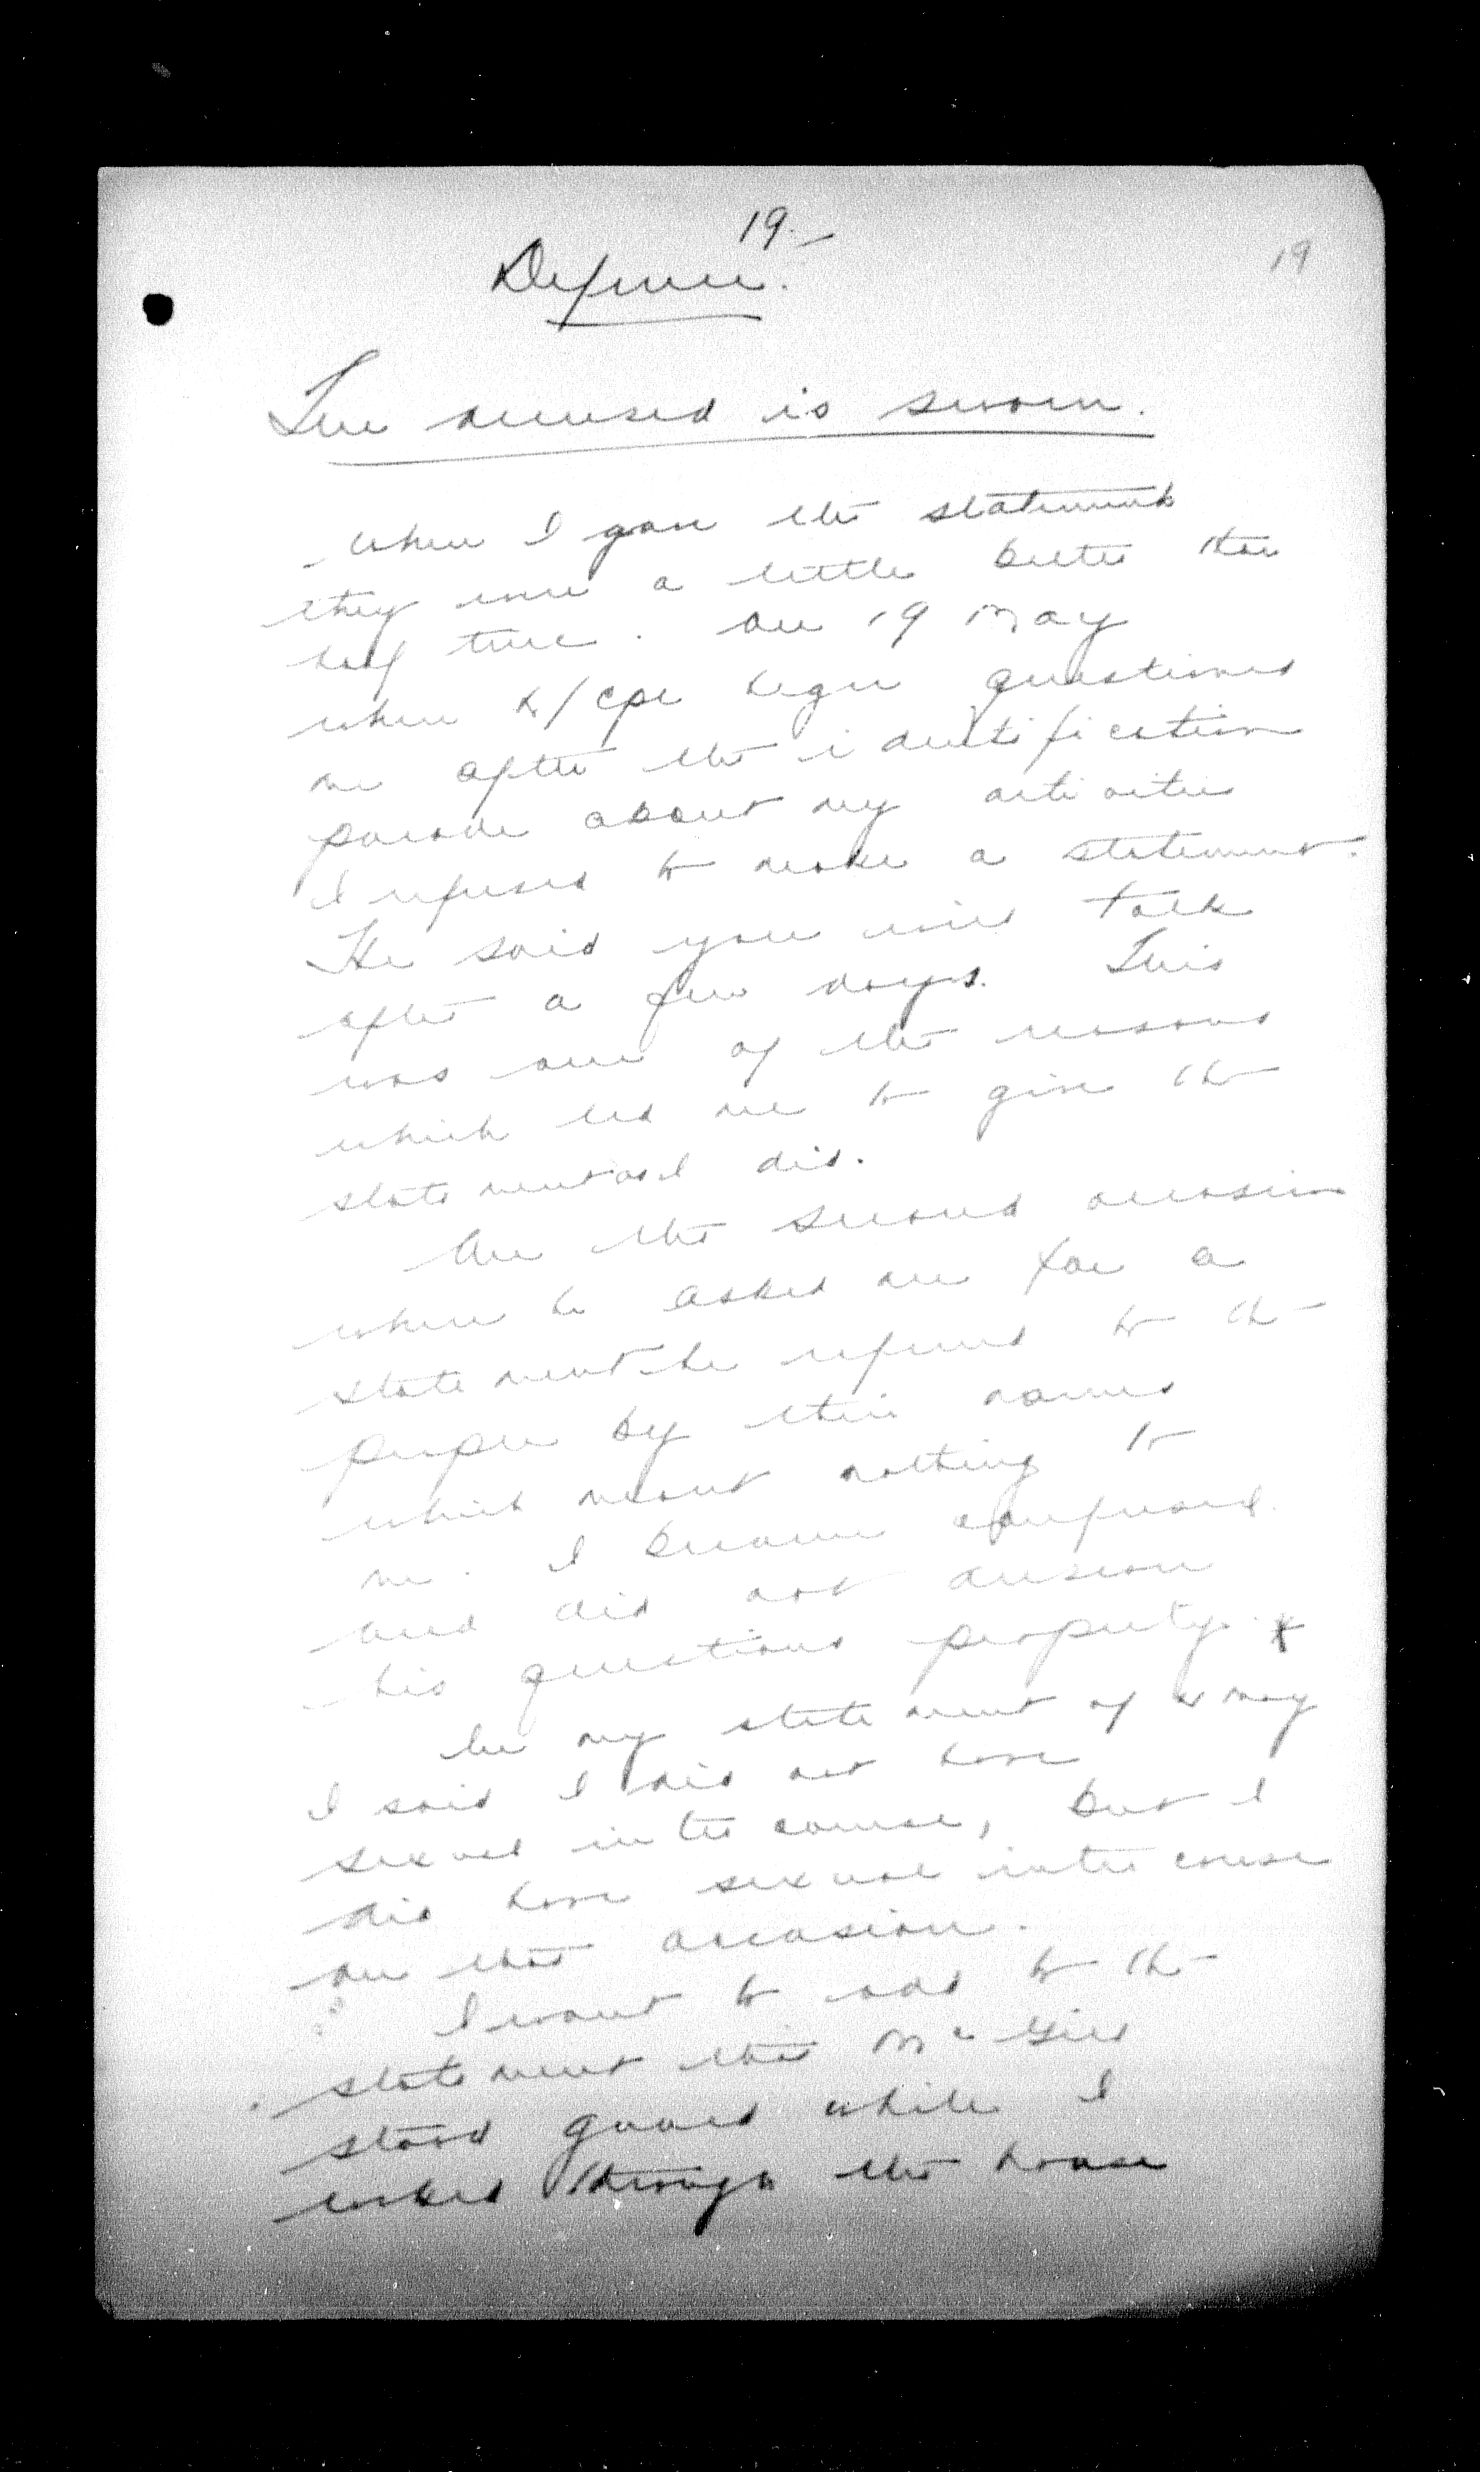 19.
19
Defence.
The accused is sworn.
When I gave the statements
they were a little better than
half true. On 19 May
when L/Cpl questioned
me after the identification
parade about my activities
I refused to make a statement.
He said you will talk
after a few days. This
was one of the reasons
which led me to give the
statement as I did.
On the second occasion
when he asked me for a
statement he referred to the
people by their names
which meant nothing to
me. I became confused
and did not answer
his questions properly. x
In my statement of May
I said I did not have
sexual intercourse, but I
did have sexual intercourse
on that occasion.
I want to add to the
statement that McGill
stood guard while I
looked through the house